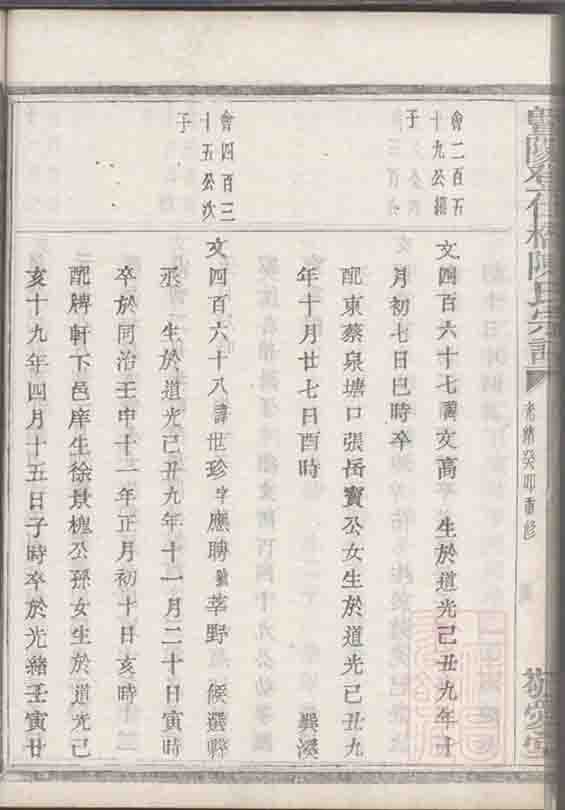 暨陽登仕橋陳氏宗譜
光緒癸卯重修
敬愛堂
會二百五
十九公繼
子
文四百六十七諱文高 生於道光己丑九年十
月初七日巳時卒
配東蔡泉塘口張岳寶公女生於道光己丑九
年十月廿七日酉時
會四百三
十五公次
子
文四百六十八諱世珍字應聘號莘野 候選縣
丞 生於道光己丑九年十一月二十日寅時
卒於同治壬申十一年正月初十日亥時
配牌軒下邑庠生徐景槐公孫女生於道光己
亥十九年四月十五日子時卒於光緒壬寅廿